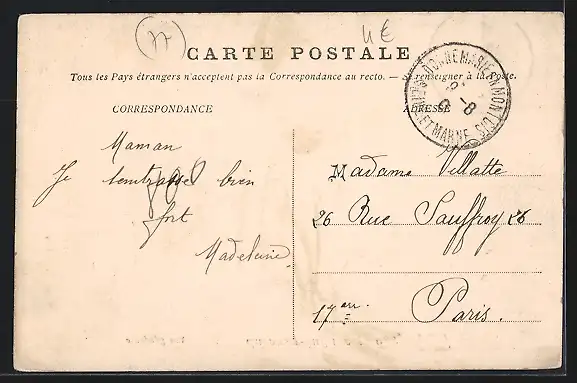 77
4€
CARTE POSTALE
Tous les Pays étrangers n'acceptent pas la Correspondance au recto. — Se renseigner à la Poste.
CORRESPONDANCE
ADRESSE
8-8
SEINE-ET-MARNE
Maman
Je bien
fort
Madeleine
Madame Villatte
26 Rue Sauffroy 26
Paris.
17em.